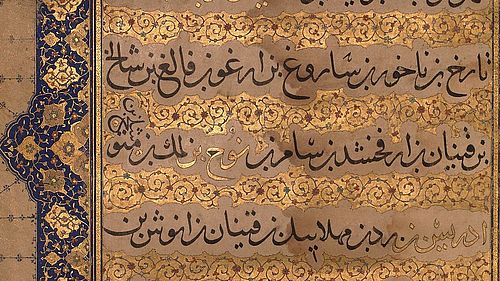 تارخ بن ناخور بن ساروغ بن ارغو بن فالغ بن شالخ
بن قینان بن ارفخشد بن سام بن نوح بن لمک بن متو
ادریس بن یرد بن مهلاییل بن قینان بن انوش بن